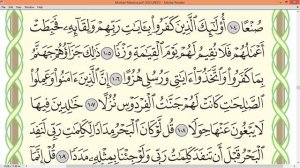 صُنْعًا ١٠٤ أُو۟لَٰٓئِكَ ٱلَّذِينَ كَفَرُوا۟ بِـَٔايَٰتِ رَبِّهِمْ وَلِقَآئِهِۦ فَحَبِطَتْ
أَعْمَٰلُهُمْ فَلَا نُقِيمُ لَهُمْ يَوْمَ ٱلْقِيَٰمَةِ وَزْنًا ١٠٥ ذَٰلِكَ جَزَآؤُهُمْ جَهَنَّمُ
بِمَا كَفَرُوا۟ وَٱتَّخَذُوٓا۟ ءَايَٰتِى وَرُسُلِى هُزُوًا ١٠٦ إِنَّ ٱلَّذِينَ ءَامَنُوا۟ وَعَمِلُوا۟
ٱلصَّٰلِحَٰتِ كَانَتْ لَهُمْ جَنَّٰتُ ٱلْفِرْدَوْسِ نُزُلًا ١٠٧ خَٰلِدِينَ فِيهَا
لَا يَبْغُونَ عَنْهَا حِوَلًا ١٠٨ قُل لَّوْ كَانَ ٱلْبَحْرُ مِدَادًا لِّكَلِمَٰتِ رَبِّى لَنَفِدَ
ٱلْبَحْرُ قَبْلَ أَن تَنفَدَ كَلِمَٰتُ رَبِّى وَلَوْ جِئْنَا بِمِثْلِهِۦ مَدَدًا ١٠٩ قُلْ